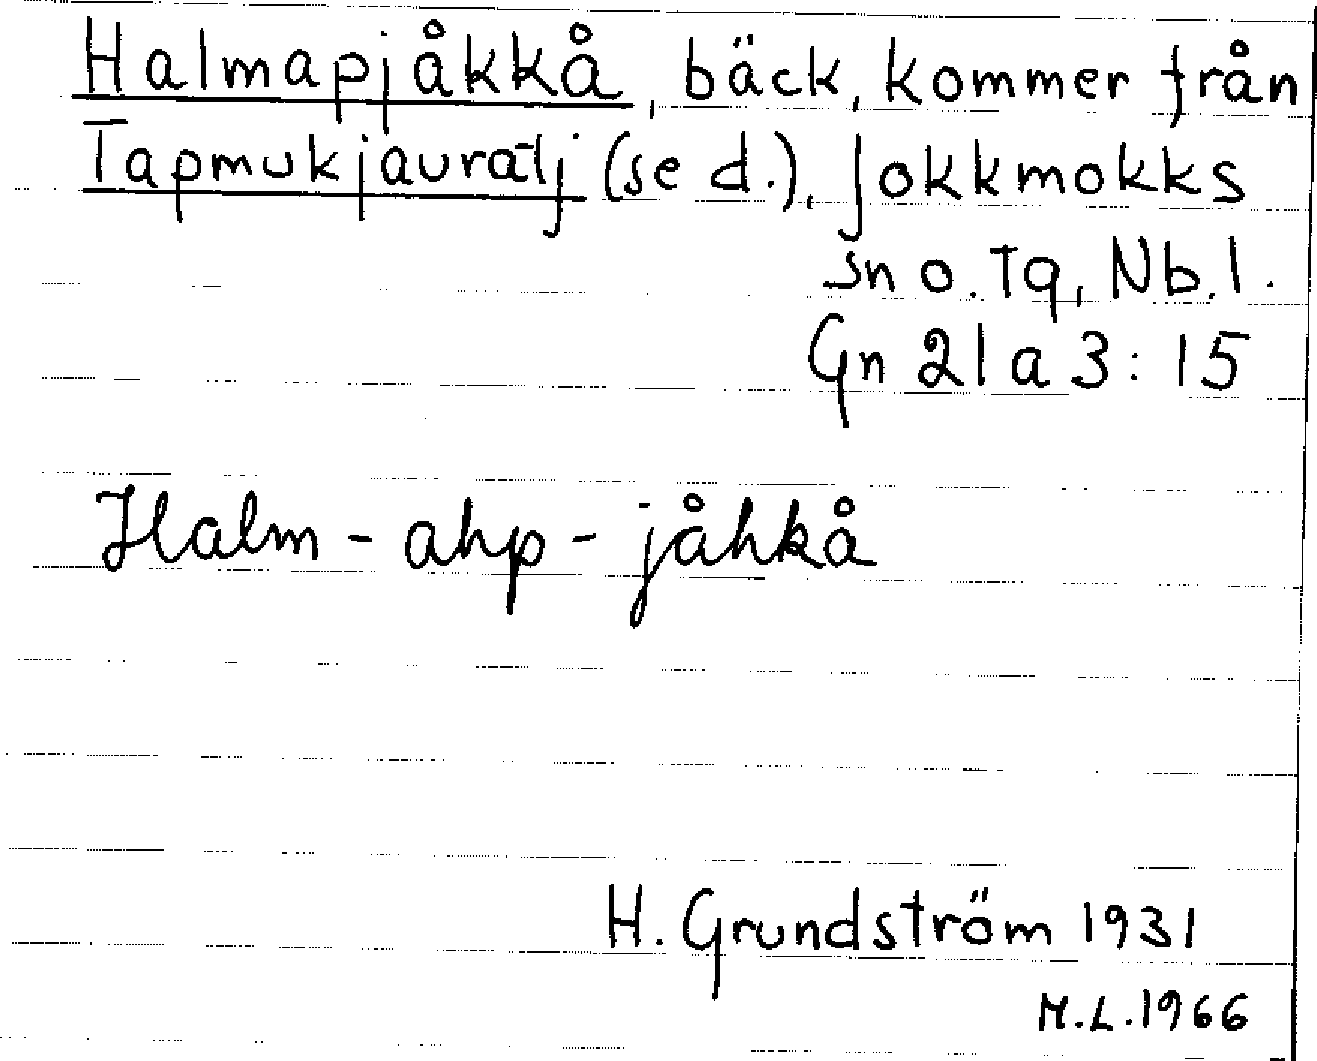 Halmapjåkkå, bäck, kommer från
Tapmukjauratj (se d.), Jokkmokks
sn o. Tg, Nb.l.
Gn 21 a 3:15
Halm-ahp-jåhkå
H. Grundström 1931
M.L. 1966